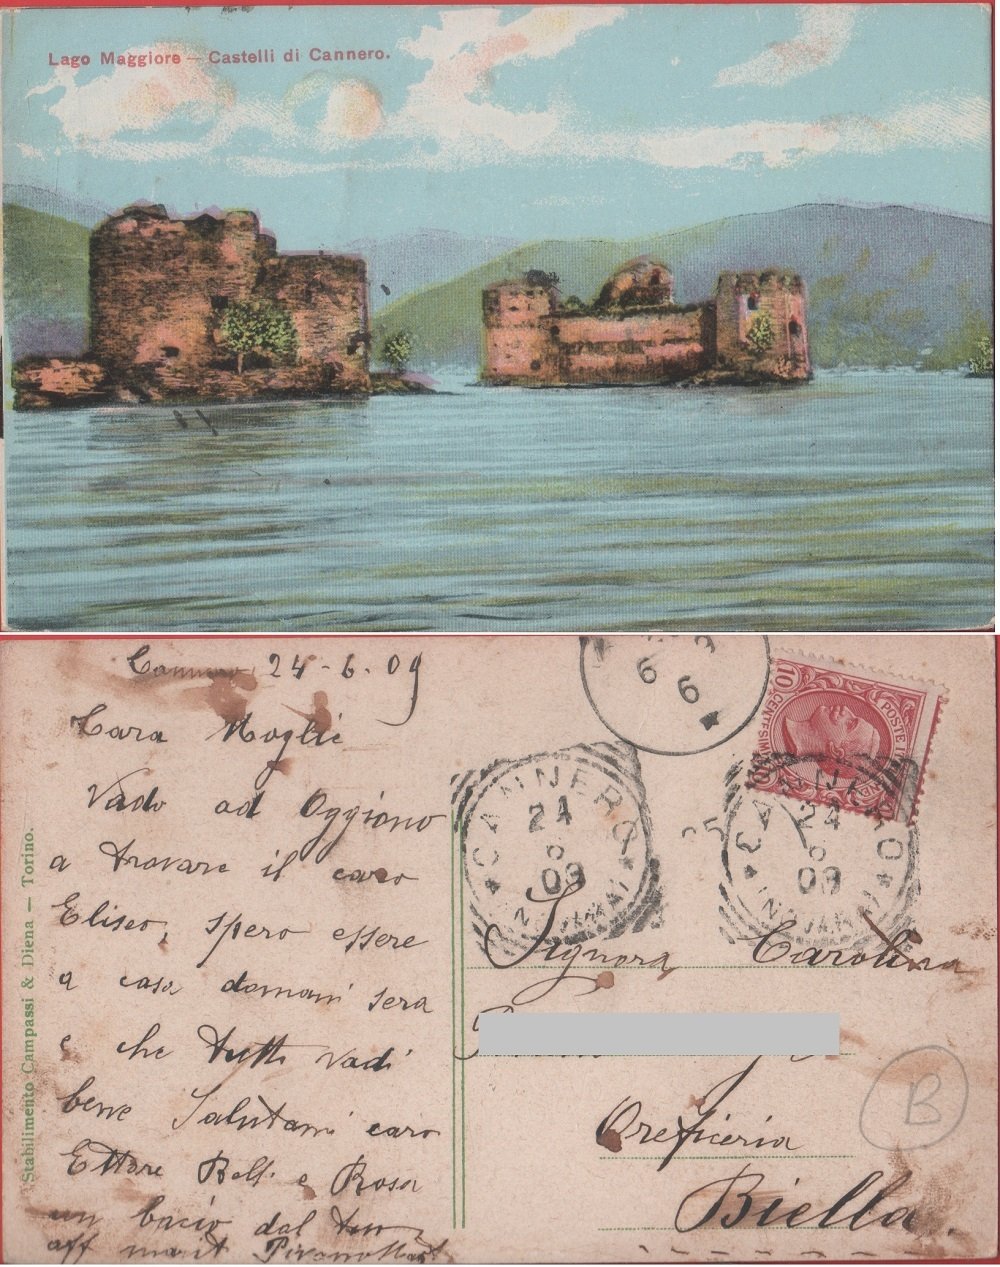 Lago Maggiore — Castelli di Cannero.
Cannero 24-6-09
Cara Moglie
Vado ad Oggiono
a trovare il caro
Eliseo, spero essere
a casa domani sera
e che tutti vadi
bene Salutami caro
Ettore Bell. e Rosa
un bacio dal tuo
aff marit
Stabilimento Campassi & Diena — Torino.
6 6
CANNERO
24
6
09
10
CENTESIMI
POSTE
CANNERO
24
6
09
25
Signora Carolina
Oreficeria
Biella.
B